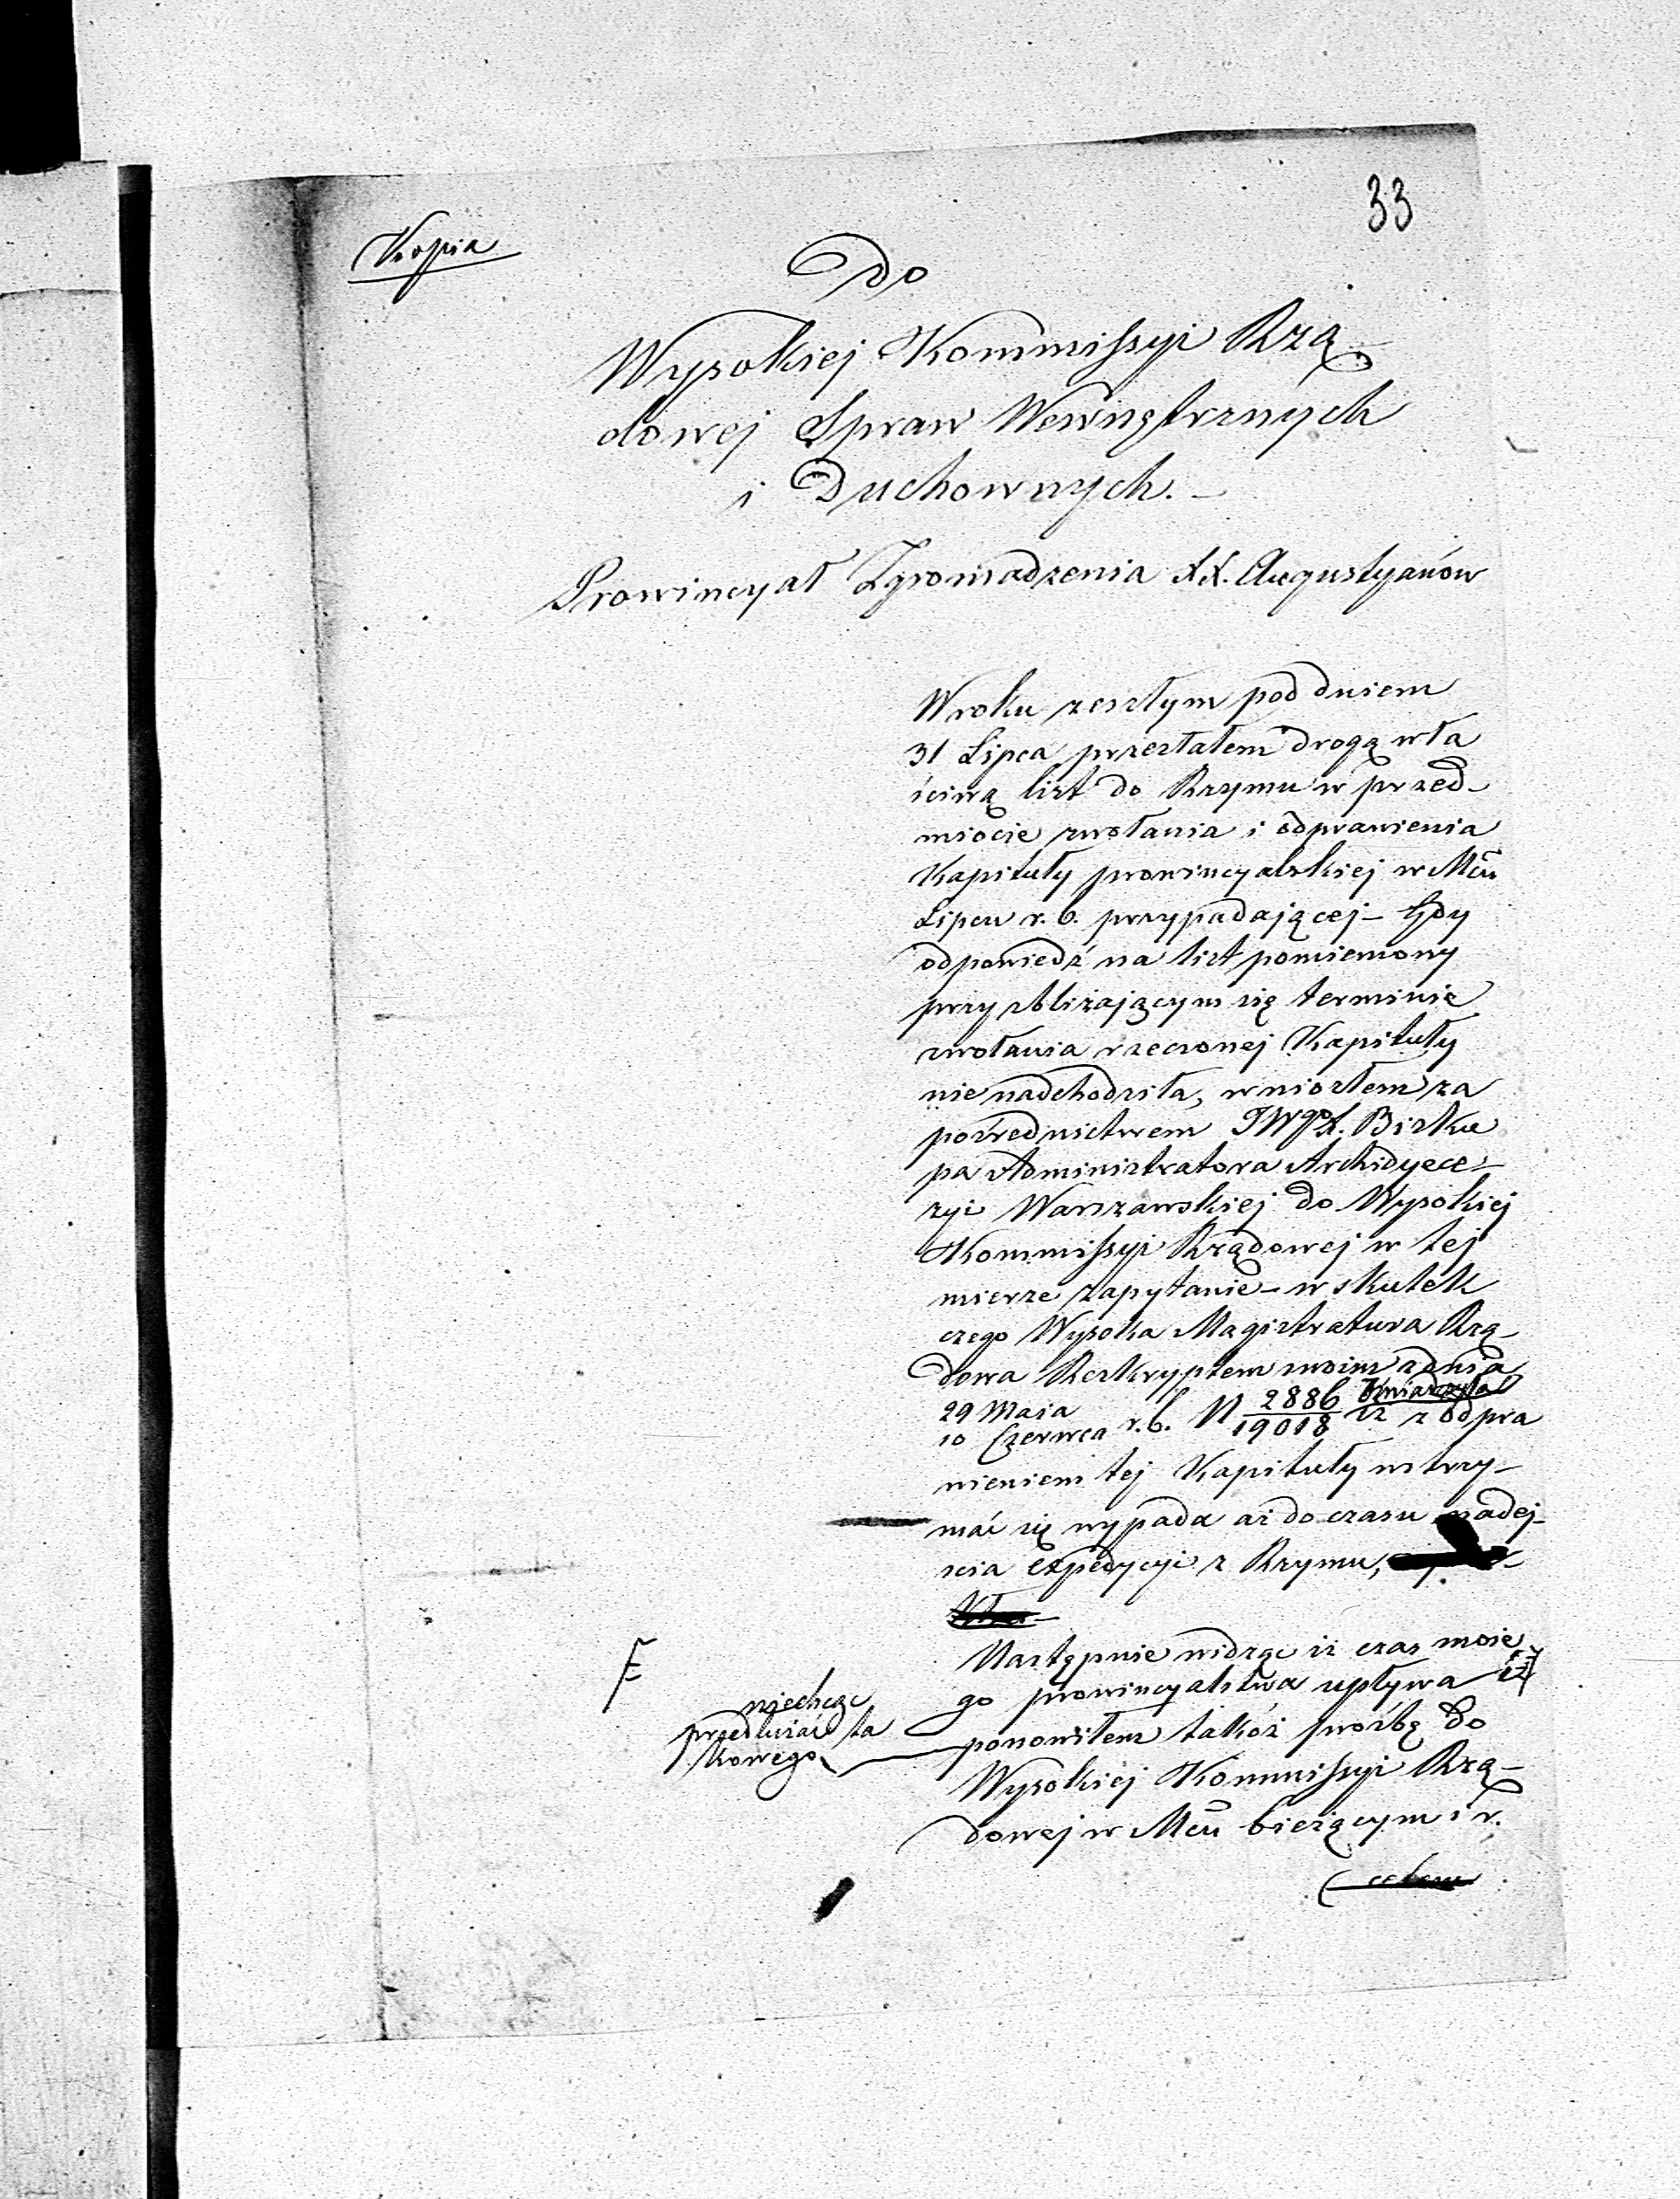 33
Kopia
Do
Wysokiej Kommissyi Rzą
dowej Spraw Wewnętrznych
i Duchownych. –
Prowincyał Zgromadzenia XX. Augustyanów
W roku zeszłym pod dniem
31 Lipca przesłałem drogą wła
ściwą list do Rzymu w przed-
miocie zwołania i odprawienia
Kapituły prowincyalskiej w Mcu
Lipcu r. b. przypadającej – Gdy
odpowiedź na list pomieniony
przy zbliżającym się terminie
zwołania rzeczonej Kapituły
nie nadchodziła, wniosłem za
pośrednictwem JWgo X. Bisku
pa Administratora Archidyece-
zyi Warszawskiej do Wysokiej
Kommissyi Rządowej w tej
mierze zapytanie – w skutek
czego Wysoka Magistratura Rzą-
dowa Reskryptem swoim z dnia
29 Maja
10 Czerwca r. b. N 2886/19018 iż z odpra
wieniem tej Kapituły wstrzy-
mać się wypada aż do czasu nadej-
scia expedycyi z Rzymu,
Następnie widząc iż czas moie
go prowincyalstwa upływa
niechcąc
przedłużać ta
kowego
ponowiłem takóż prośbę do
Wysokiej Kommissyi Rzą-
dowej w Mcu bieżącym i r.